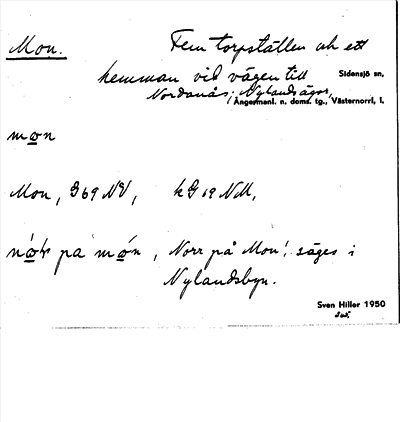 Mon. Fem torpställen och ett
hemman vid vägen till Sidensjö sn,
Nordanås; Nylandsägor, Ångermanl. n. doms. tg., Västernorrl. l.
mon
Mon, G69 NV, kG 19 NM,
på mǿn, Norr på Mon! säges i
Nylandsbyn.
Sven Hiller 1950